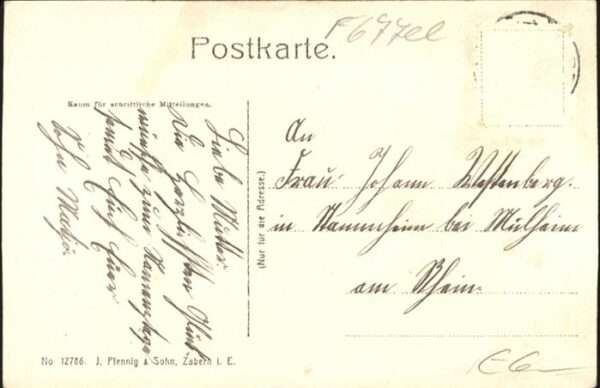 Postkarte.
Raum für schriftliche Mitteilungen.
Liebe Mutter.
Die herzlichsten Glück-
wünsche zum Namenstage
sendet Euch Euer
Sohn
(Nur für die Adresse.)
An
Frau Johann Westenberg.
in Stammheim bei Mülheim
am Rhein.
No 12786. J. Pfennig & Sohn, Zabern i. E.